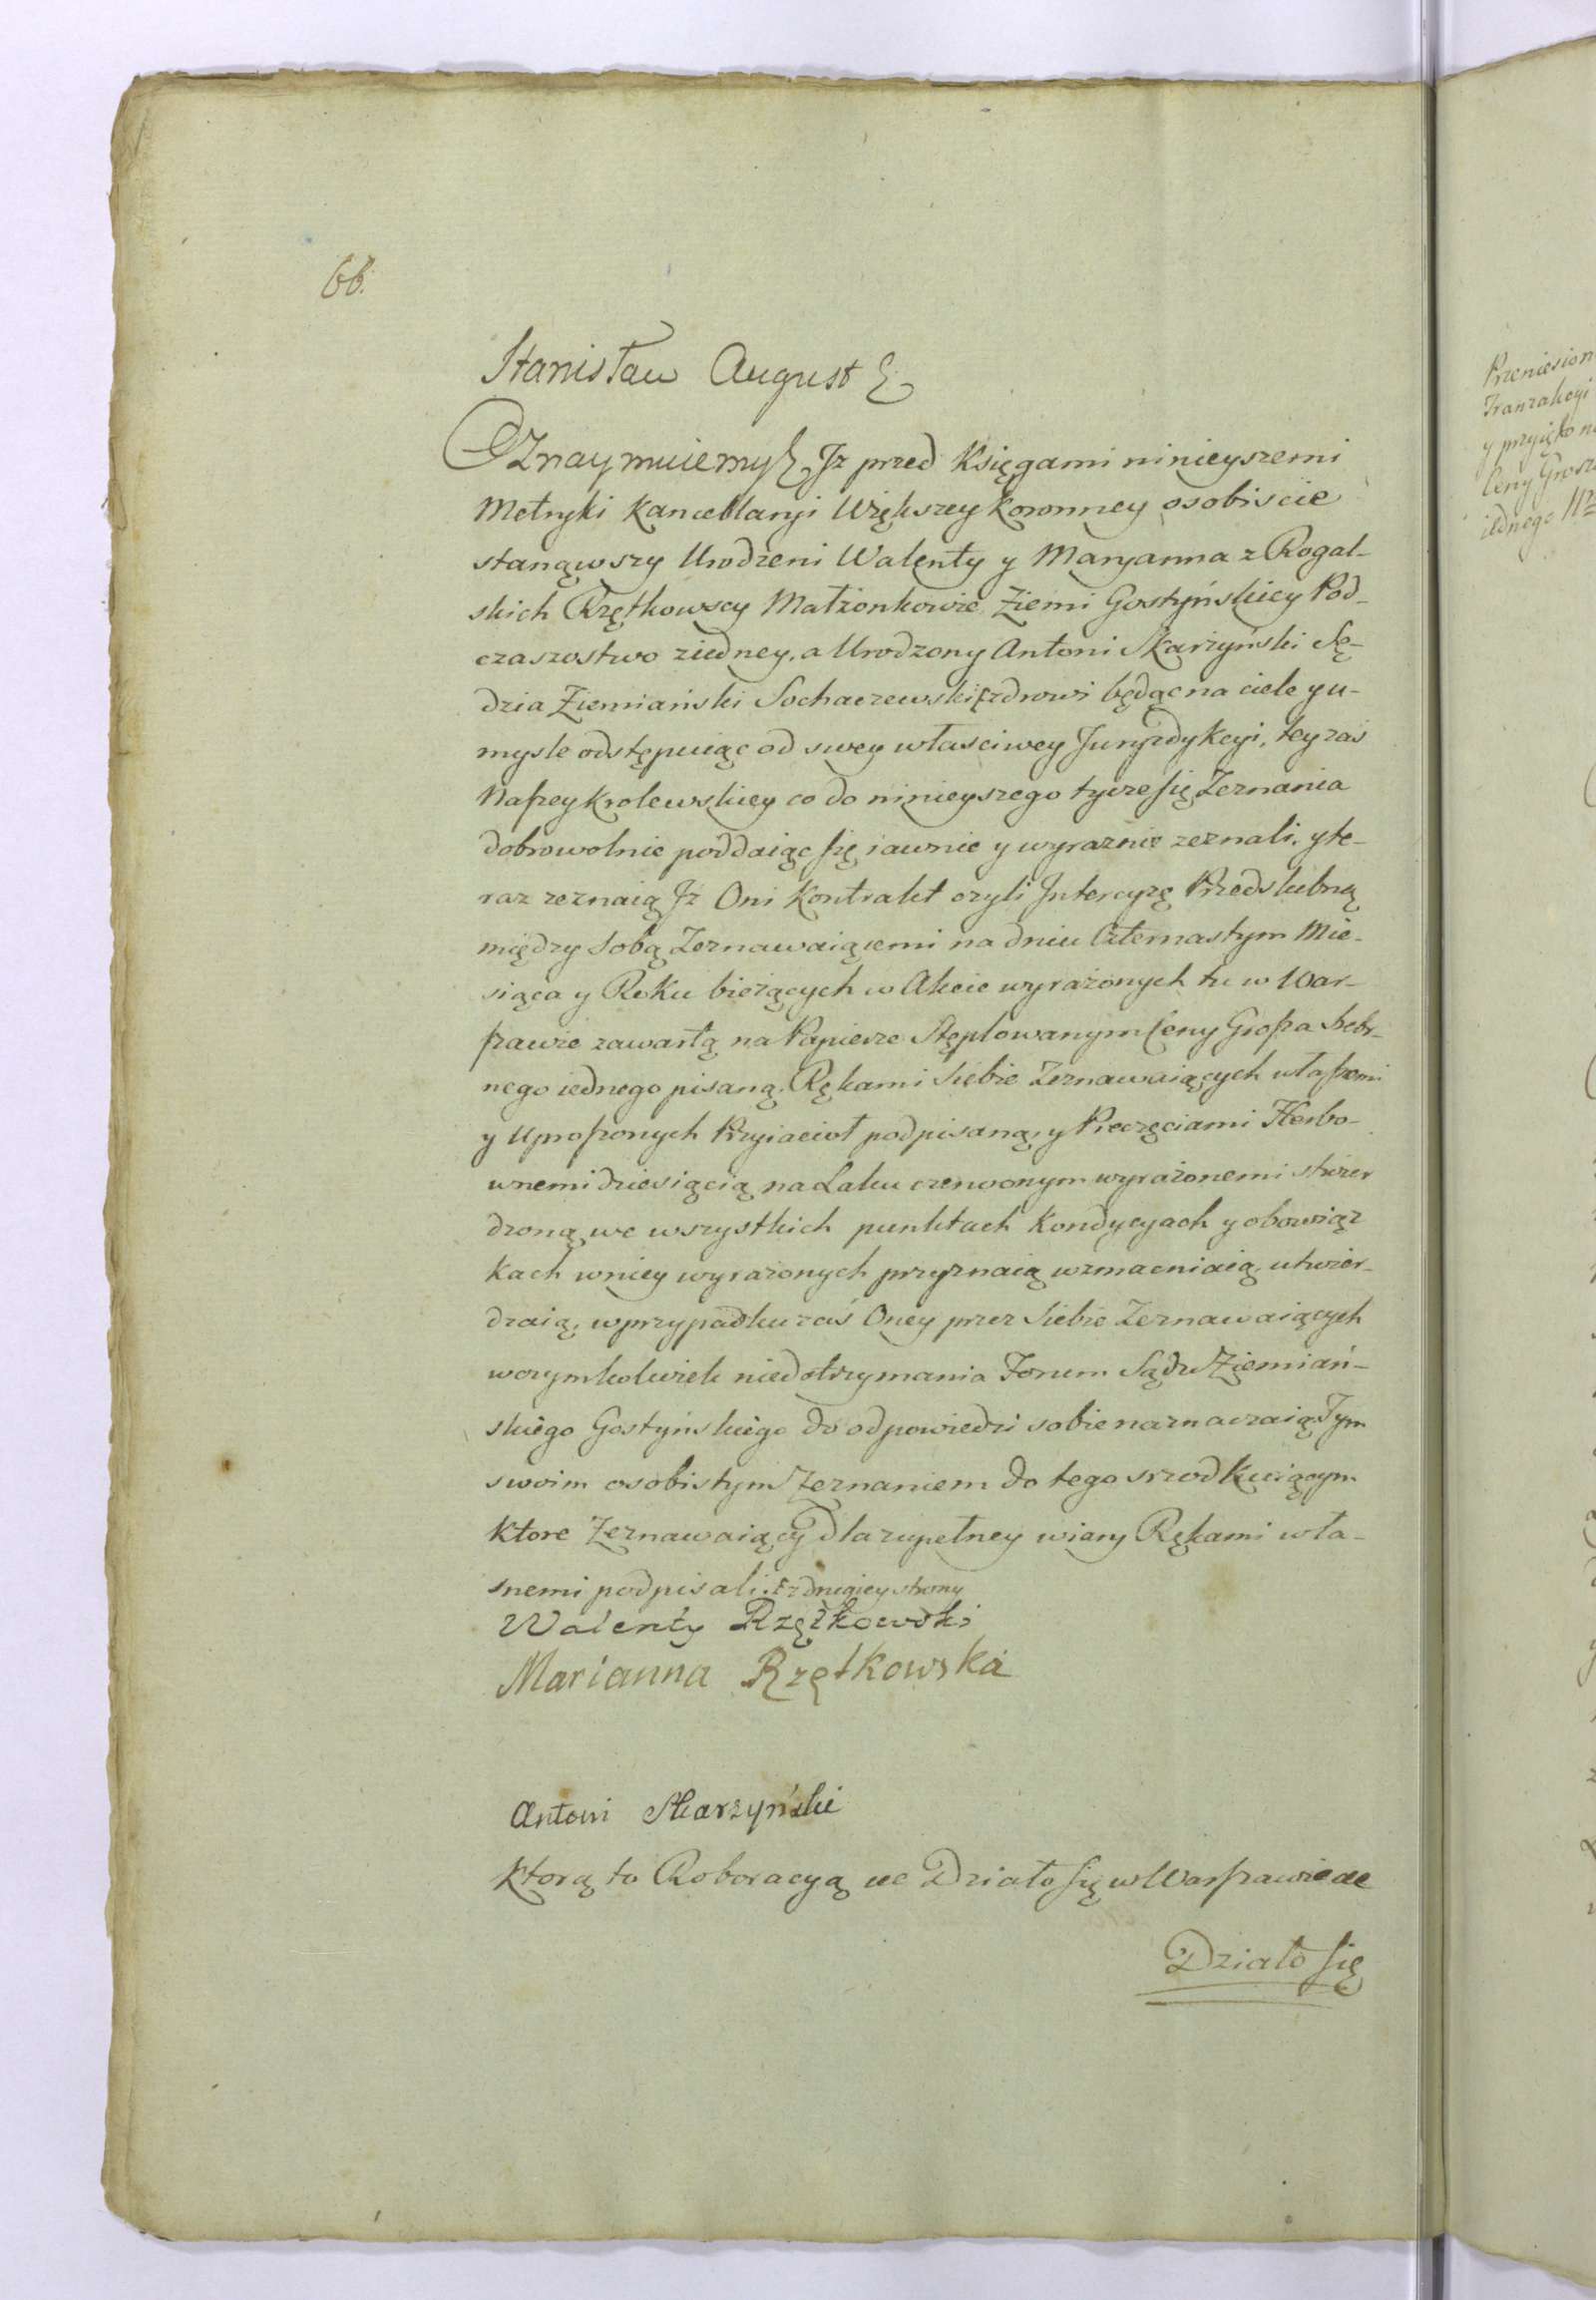 66.
Stanisław August &
Oznaymuiemy &, Jż przed Księgami ninieyszemi
Metryki Kancellaryi Większey Koronney osobiscie
stanąwszy Urodzeni Walenty y Maryanna z Rogal-
skich Rzętkowscy Małżonkowie Ziemi Gostyńskiey Pod-
czaszostwo ziedney, a Urodzony Antoni Skarżyński Sę-
dzia Ziemiański Sochaczewski zdrowi będąc na ciele y u-
mysle odstępuiąc od swey własciwey Juryzdykcyi, tey zas
Naszey Krolewskiey co do ninieyszego tycze się Zeznania
dobrowolnie poddaiąc się iawnie y wyraznie zeznali, y te-
raz zeznaią Jż Oni Kontrakt czyli Jntercyzę Przedslubną
między Sobą Zeznawaiącemi na dniu Czternastym Mie-
siąca y Roku bieżących w Akcie wyrażonych tu w War-
szawie zawartą na Papierze Stęplowanym Ceny Grosza Srebr-
nego iednego pisaną, Rękami Siebie Zeznawaiących własnemi
y Uproszonych Przyiacioł podpisaną, y Pieczęciami Herbo-
wnemi dziesiącią na Laku czerwonym wyrażonemi stwier
dzoną we wszystkich punktach Kondycyach y obowiąz
kach wniey wyrażonych przyznaią wzmacniaią, utwier-
dzaią, w przypadku zaś Oney przez Siebie Zeznawaiących
wczymkolwiek niedotrzymania Forum Sądu Ziemiań-
skiego Gostyńskiego do odpowiedzi sobie naznaczaią Tym
swoim osobistym Zeznaniem do tego srzodkuiącym
Ktore Zeznawaiący dla zupełney wiary Rękami wła-
snemi podpisali. z drugiey strony
Walenty Rzętkowski
Marianna Rzętkowska
Antoni Skarzyński
Ktorą to Roboracyą &c Działo się w Warszawie &c
Działo się
Przeniesion
Tranzakcyi
y przyięto n
Ceny Grosz
iednego Nr